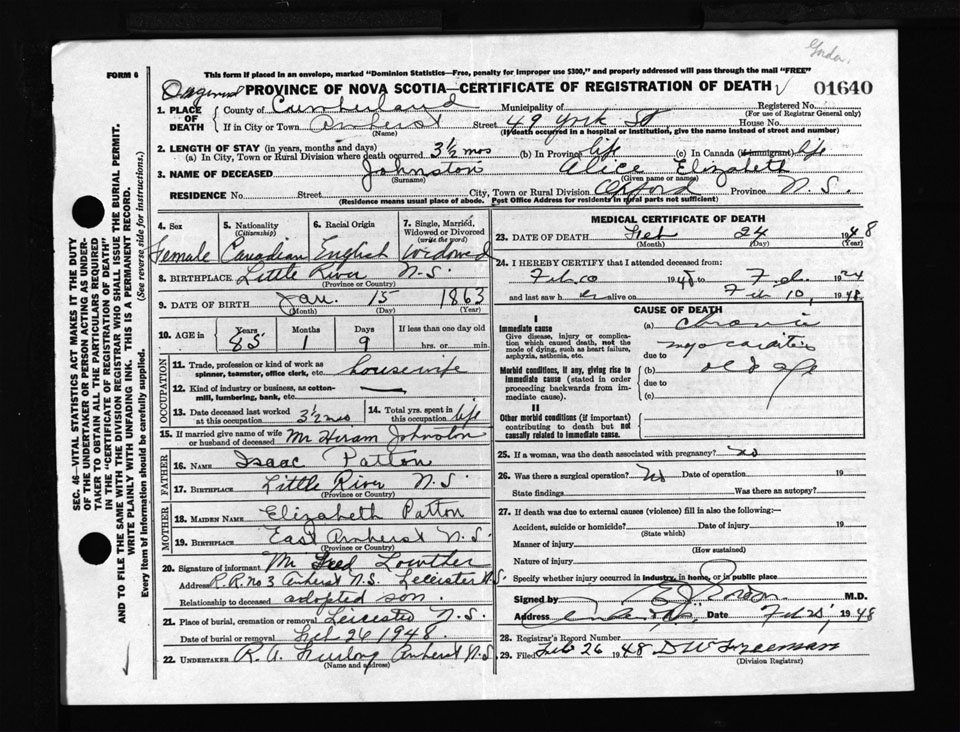 Gordon
FORM 6
This form if placed in an envelope, marked "Dominion Statistics—Free, penalty for improper use $300," and properly addressed will pass through the mail "FREE"
PROVINCE OF NOVA SCOTIA—CERTIFICATE OF REGISTRATION OF DEATH 01640
1. PLACE OF DEATH County of Cumberland Municipality of Registered No.
(For use of Registrar General only)
If in City or Town Amherst Street 49 York St House No.
(Name) (If death occurred in a hospital or institution, give the name instead of street and number)
2. LENGTH OF STAY (in years, months and days)
(a) In City, Town or Rural Division where death occurred 3½ mos (b) In Province life (c) In Canada (if immigrant) life
3. NAME OF DECEASED Johnston Alice Elizabeth
(Surname) (Given name or names)
RESIDENCE No. Street City, Town or Rural Division Oxford Province N.S.
(Residence means usual place of abode. Post Office Address for residents in rural parts not sufficient)
4. Sex Female
5. Nationality (Citizenship) Canadian
6. Racial Origin English
7. Single, Married, Widowed or Divorced (write the word) Widowed
8. BIRTHPLACE Little River N.S.
(Province or Country)
9. DATE OF BIRTH Jan. 15 1863
(Month) (Day) (Year)
10. AGE in Years 85 Months 1 Days 9 If less than one day old hrs. or min.
OCCUPATION
11. Trade, profession or kind of work as spinner, teamster, office clerk, etc. housewife
12. Kind of industry or business, as cotton-mill, lumbering, bank, etc. —
13. Date deceased last worked at this occupation 3½ mos
14. Total yrs. spent in this occupation life
15. If married give name of wife or husband of deceased Mr Hiram Johnston
FATHER
16. NAME Isaac Patton
17. BIRTHPLACE Little River N.S.
(Province or Country)
MOTHER
18. MAIDEN NAME Elizabeth Patton
19. BIRTHPLACE East Amherst N.S.
(Province or Country)
20. Signature of informant Mr Fred Lowther
Address R.R. No 3 Amherst N.S. Leicester N.S.
Relationship to deceased adopted son.
21. Place of burial, cremation or removal Leicester N.S.
Date of burial or removal Feb 26 1948.
22. UNDERTAKER R.A. Furlong Amherst N.S.
(Name and address)
MEDICAL CERTIFICATE OF DEATH
23. DATE OF DEATH Feb 24 1948
(Month) (Day) (Year)
24. I HEREBY CERTIFY that I attended deceased from:
Feb 10 1948 to Feb 1924
and last saw her alive on Feb 10, 1948.
CAUSE OF DEATH
I
Immediate cause
Give disease, injury or complication which caused death, not the mode of dying, such as heart failure, asphyxia, asthenia, etc.
(a) chronic myocarditis
due to
Morbid conditions, if any, giving rise to immediate cause (stated in order proceeding backwards from immediate cause).
(b) old age
due to
(c)
II
Other morbid conditions (if important) contributing to death but not causally related to immediate cause.
25. If a woman, was the death associated with pregnancy? No
26. Was there a surgical operation? No Date of operation 19
State findings Was there an autopsy?
27. If death was due to external causes (violence) fill in also the following:—
Accident, suicide or homicide? Date of injury 19
(State which)
Manner of injury
(How sustained)
Nature of injury
Specify whether injury occurred in industry, in home, or in public place
Signed by M.D.
Address Date Feb 25, 1948
28. Registrar's Record Number
29. Filed Feb 26 1948 D W Freeman
(Division Registrar)
SEC. 46—VITAL STATISTICS ACT MAKES IT THE DUTY
OF THE UNDERTAKER OR PERSON ACTING AS UNDER-
TAKER TO OBTAIN ALL THE PARTICULARS REQUIRED
IN THE "CERTIFICATE OF REGISTRATION OF DEATH"
AND TO FILE THE SAME WITH THE DIVISION REGISTRAR WHO SHALL ISSUE THE BURIAL PERMIT.
WRITE PLAINLY WITH UNFADING INK. THIS IS A PERMANENT RECORD.
Every item of information should be carefully supplied. (See reverse side for instructions.)